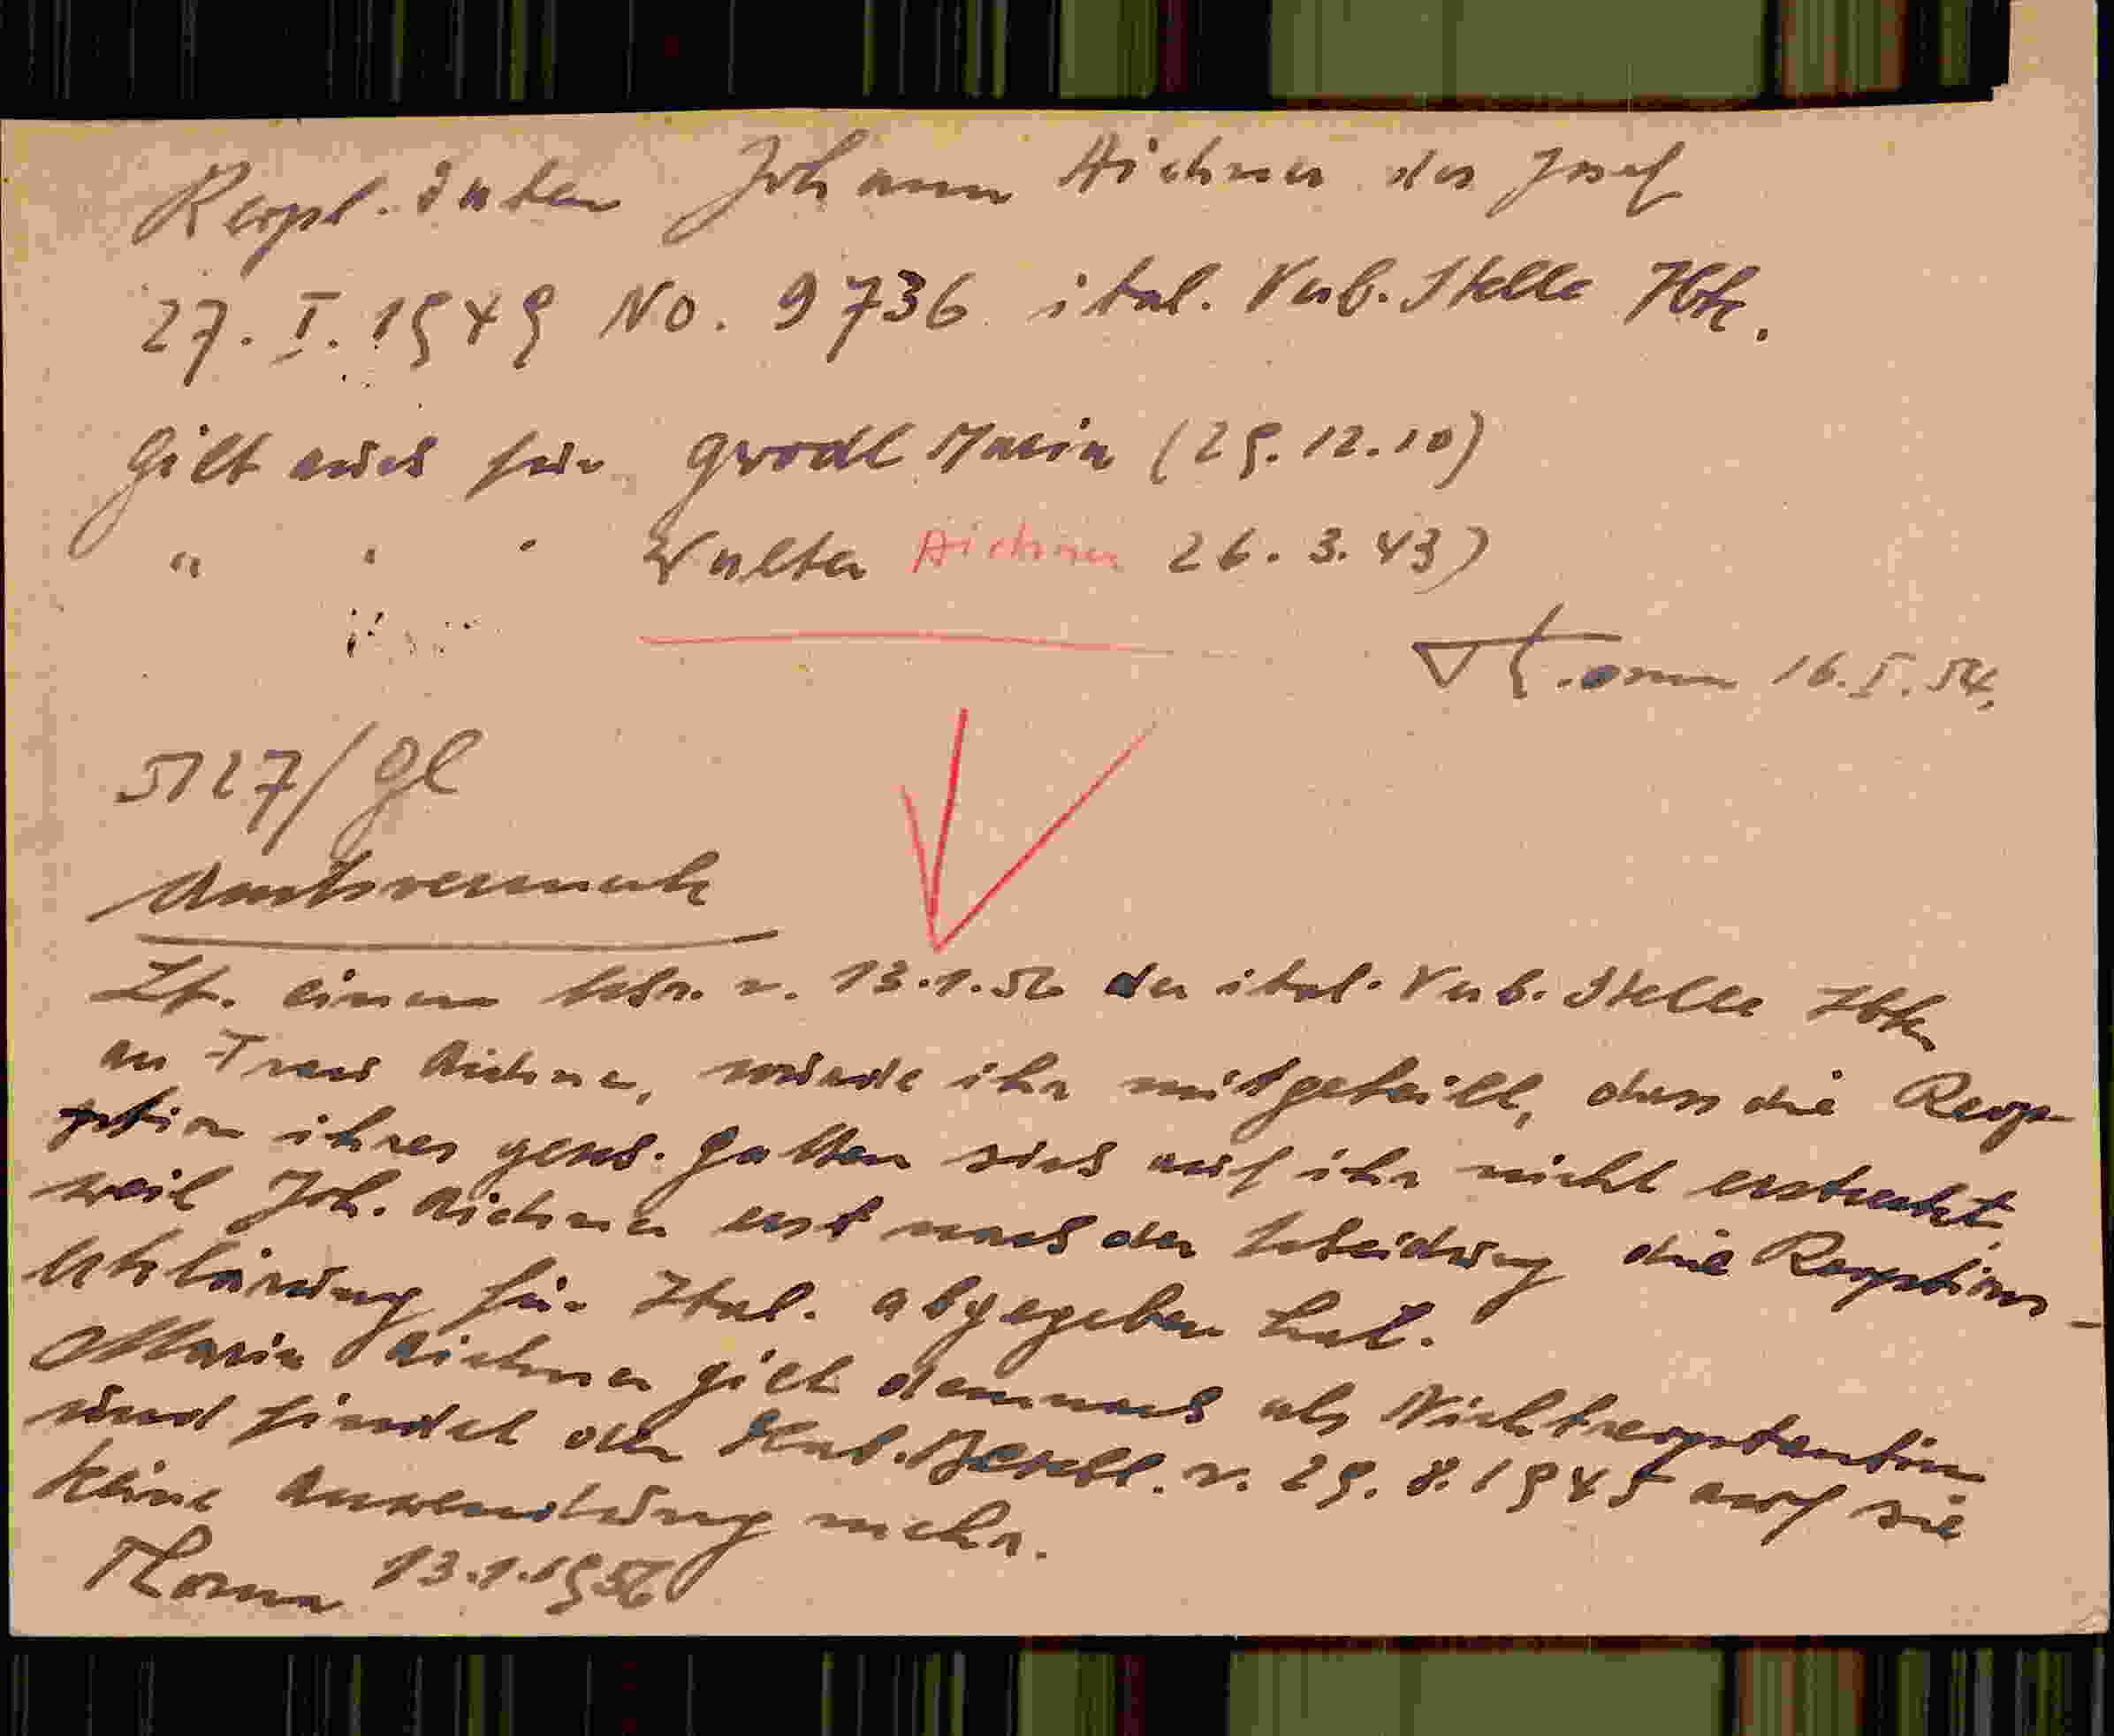 Reopt. daten Johann Aichner des Josef
27. I. 1949 No. 9736 ital. Verb. Stelle Ibk.
Gilt auch für Grodl Maria (29.12.10)
" " " Walter Aichner 26.3.43)
Thoma 16.I.54.
5127/Gl
Amtsvermerk
Lt. einem Schr. v. 13.1.56 der ital. Verb. Stelle Ibk
an Frau Aichner, wurde ihr mitgeteilt, dass die Reop-
ption ihres gesch. Gatten sich auf ihr nicht erstreckt,
weil Joh. Aichner erst nach der Scheidung die Reoptions-
erklärung für Ital. abgegeben hat.
Maria Aichner gilt demnach als Nichtreoptantin
und findet der Kab. Beschl. v. 29.8.1945 auf sie
keine Anwendung mehr.
Thoma 13.1.1956